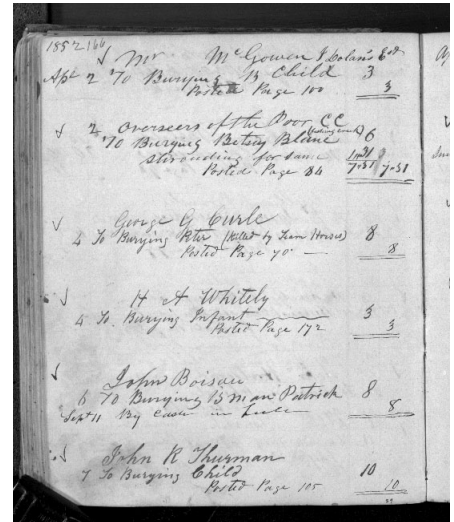 1852 166
Mr McGowen & Dolan's Est
Apl 2 To Burying B Child 3
Posted Page 100 3
2 Overseers of the Poor CC
To Burying Betsy Blane 6
shrouding for same
Posted Page 84 7.31 7.31
George G Curle
4 To Burying Peter (Killed by Team Horses) 8
Posted Page 70 8
H A Whitely
4 To Burying Infant 3
Posted Page 172 3
John Boisau
6 To Burying B man Patrick 8
Sept 11 By Cash in full 8
John R Thurman
7 To Burying Child 10
Posted Page 105 10